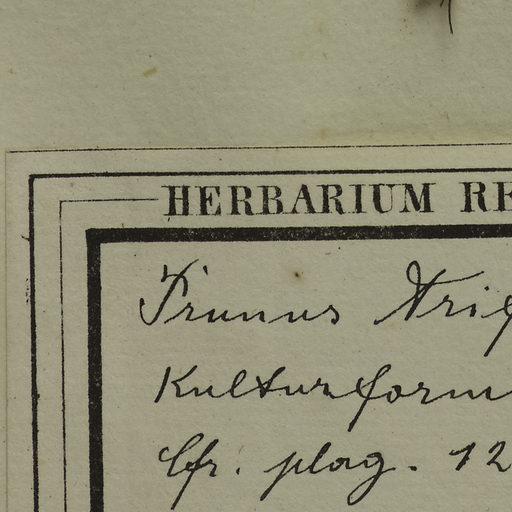 HERBARIUM RE
Prunus
Kulturform
Cfr. plag. 12